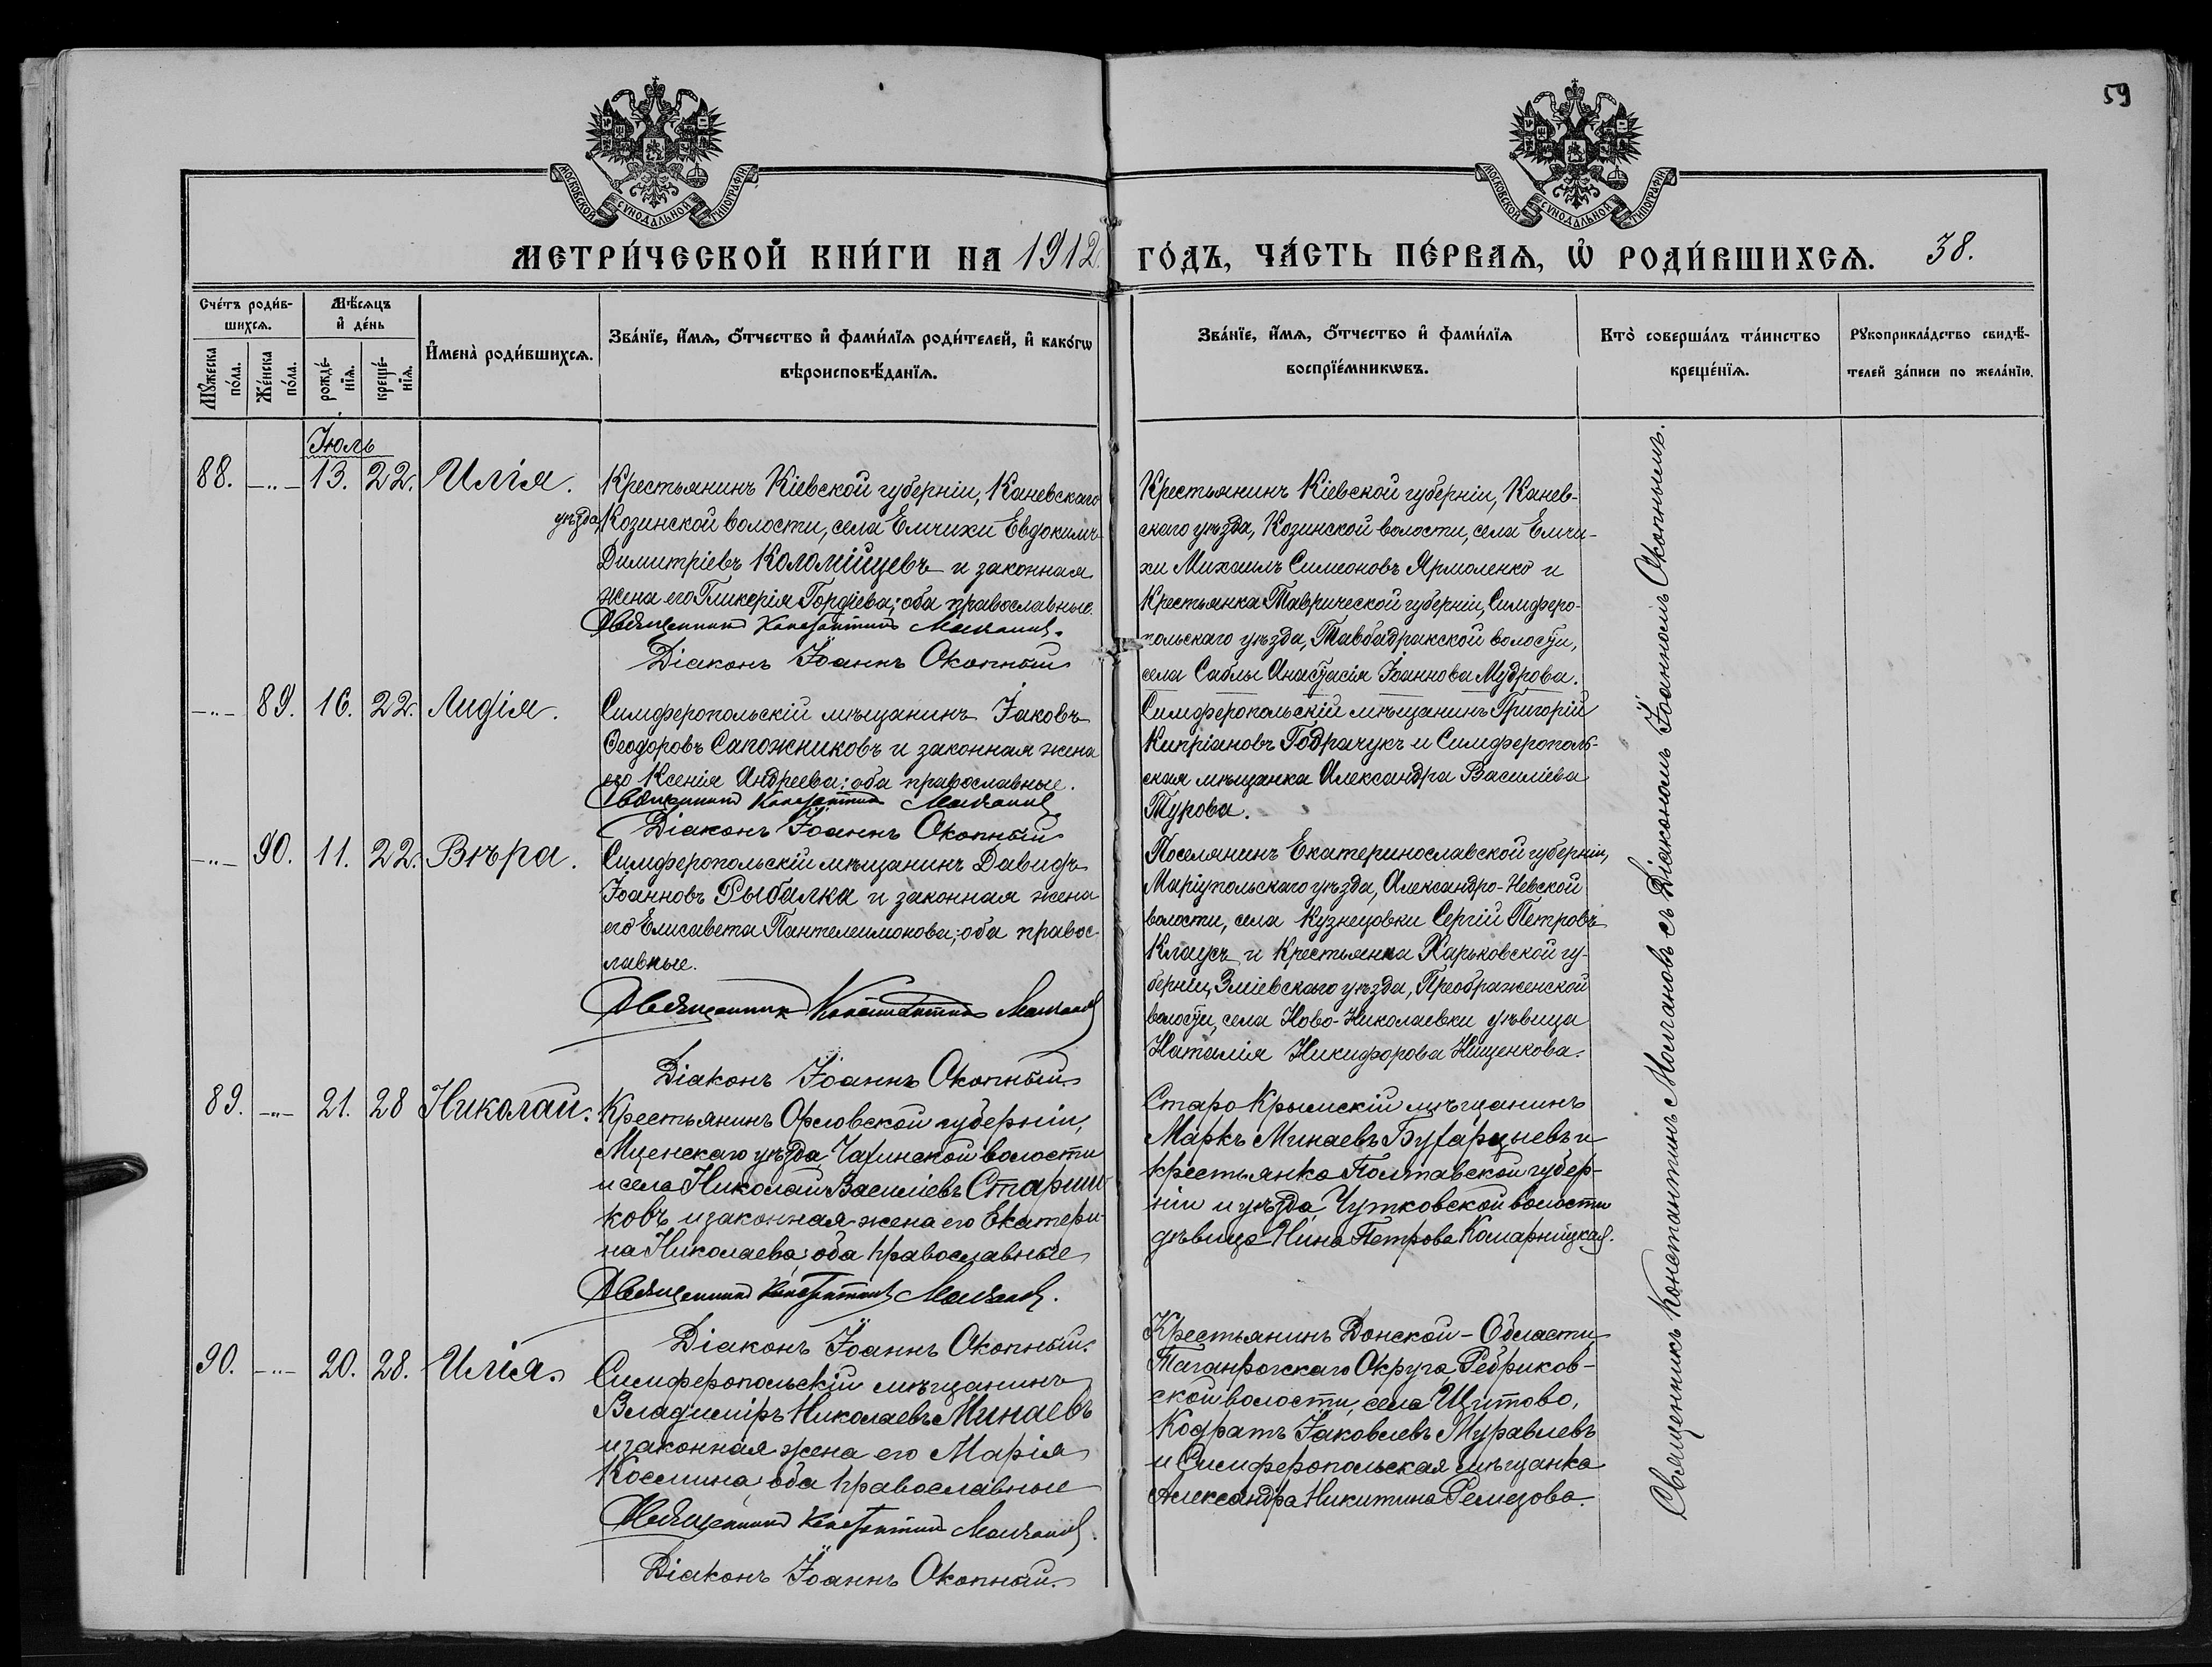 59
МОСКОВСКОЙ СѴНОДАЛЬНОЙ ТИПОГРАФІИ
МОСКОВСКОЙ СѴНОДАЛЬНОЙ ТИПОГРАФІИ
МЕТРИ́ЧЕСКОЙ КНИ́ГИ НА 1912.
ГО́ДЪ, ЧА́СТЬ ПЕ́РВАѦ, Ѡ҆ РОДИ́ВШИХСѦ. 38.
Сче́тъ роди́в-
шихсѧ.
Мꙋ́жеска по́ла.
Же́нска по́ла.
Мѣ́сѧцъ
и҆ де́нь
рожде́-
нїѧ.
креще́-
нїѧ.
И҆мена̀ роди́вшихсѧ.
Зва́нїе, и҆́мѧ, ѻ҆́тчество и҆ фами́лїѧ роди́телей, и҆ како́гѡ
вѣроисповѣ́данїѧ.
Зва́нїе, и҆́мѧ, ѻ҆́тчество и҆ фами́лїѧ
воспрїе́мникѡвъ.
Кто̀ соверша́лъ та́инство
креще́нїѧ.
Рꙋкоприкла́дство свидѣ́-
телей за́писи по жела́нїю.
Іюль
88. —"— 13. 22. Илія.
Крестьянинъ Кіевской губерніи, Каневскаго
уѣзда, Козинской волости, села Емчихи Евдокимъ
Димитріевъ Коломійцевъ и законная
жена его Гликерія Гордіева; оба православные.
Священникъ Константинъ Молчановъ.
Діаконъ Іоаннъ Окопный
Крестьянинъ Кіевской губерніи, Канев-
скаго уѣзда, Козинской волости, села Емчи-
хи Михаилъ Симеоновъ Ярмоленко и
Крестьянка Таврической губерніи, Симферо-
польскаго уѣзда, Тавбадракской волости,
села Саблы Анастасія Іоаннова Мудрова.
—"— 89. 16. 22. Лидія.
Симферопольскій мѣщанинъ Іаковъ
Ѳеодоровъ Сапожниковъ и законная жена
его Ксенія Андреева; оба православные.
Священникъ Константинъ Молчановъ
Діаконъ Іоаннъ Окопный
Симферопольскій мѣщанинъ Григорій
Кипріановъ Годрачукъ и Симферополь-
ская мѣщанка Александра Василіева
Турова.
—"— 90. 11. 22. Вѣра.
Симферопольскій мѣщанинъ Давидъ
Іоанновъ Рыбалка и законная жена
его Елисавета Пантелеимонова; оба правос-
лавные.
Священникъ Константинъ Молчановъ
Діаконъ Іоаннъ Окопный
Поселянинъ Екатеринославской губерніи,
Маріупольскаго уѣзда, Александро-Невской
волости, села Кузнецовки Сергій Петровъ
Клаусъ и Крестьянка Харьковской гу-
берніи, Зміевскаго уѣзда, Преображенской
волости, села Ново-Николаевки дѣвица
Наталія Никифорова Нищенкова.
89. —"— 21. 28 Николай.
Крестьянинъ Орловской губерніи,
Мценскаго уѣзда, волости
и села Николай Василіевъ Старши-
ковъ и законная жена его Екатери-
на Николаева; оба православные
Священникъ Константинъ Молчановъ.
Діаконъ Іоаннъ Окопный.
Старо-Крымскій мѣщанинъ
Маркъ Минаевъ и
крестьянка Полтавской губер-
ніи и уѣзда, Чутковской волости
дѣвица Нина Петрова Комарницкая.
90. —"— 20. 28. Илія.
Симферопольскій мѣщанинъ
Владиміръ Николаевъ Минаевъ
и законная жена его Марія
Космина; оба православные
Священникъ Константинъ Молчановъ.
Діаконъ Іоаннъ Окопный.
Крестьянинъ Донской-Области,
Таганрогскаго Округа, Ребриков-
ской волости, села Щитово,
Кодратъ Іаковлевъ Муравлевъ
и Симферопольская мѣщанка
Александра Никитина Ремезова.
Священникъ Константинъ Молчановъ съ Діакономъ Іоанномъ Окопнымъ.